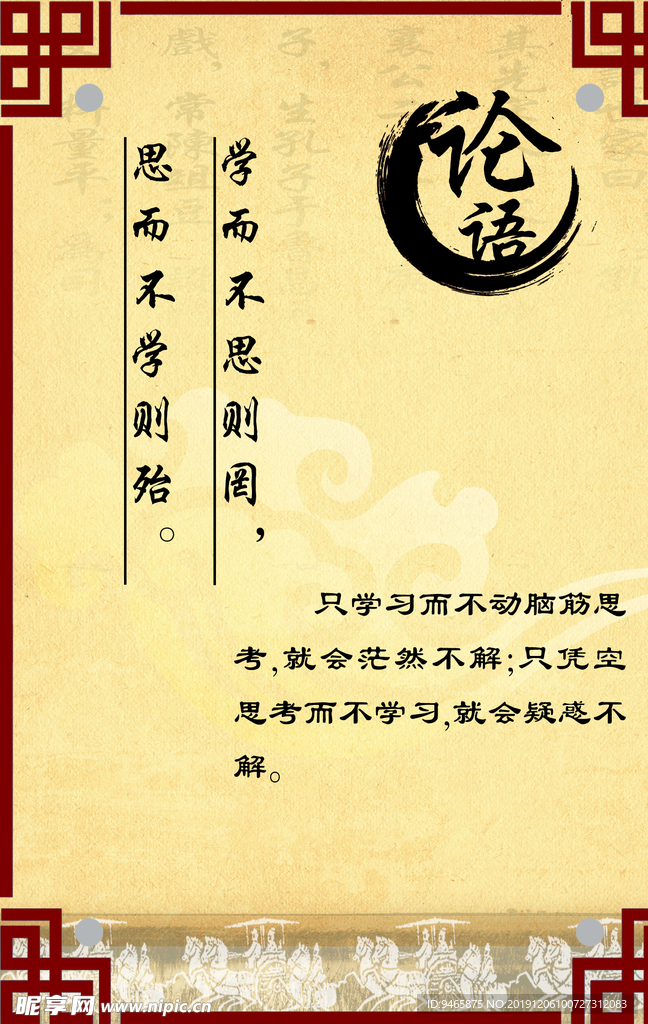 论语
学而不思则罔，
思而不学则殆。
只学习而不动脑筋思
考,就会茫然不解;只凭空
思考而不学习,就会疑惑不
解。
昵享网 www.nipic.cn
ID:9465875 NO:20191206100727312083